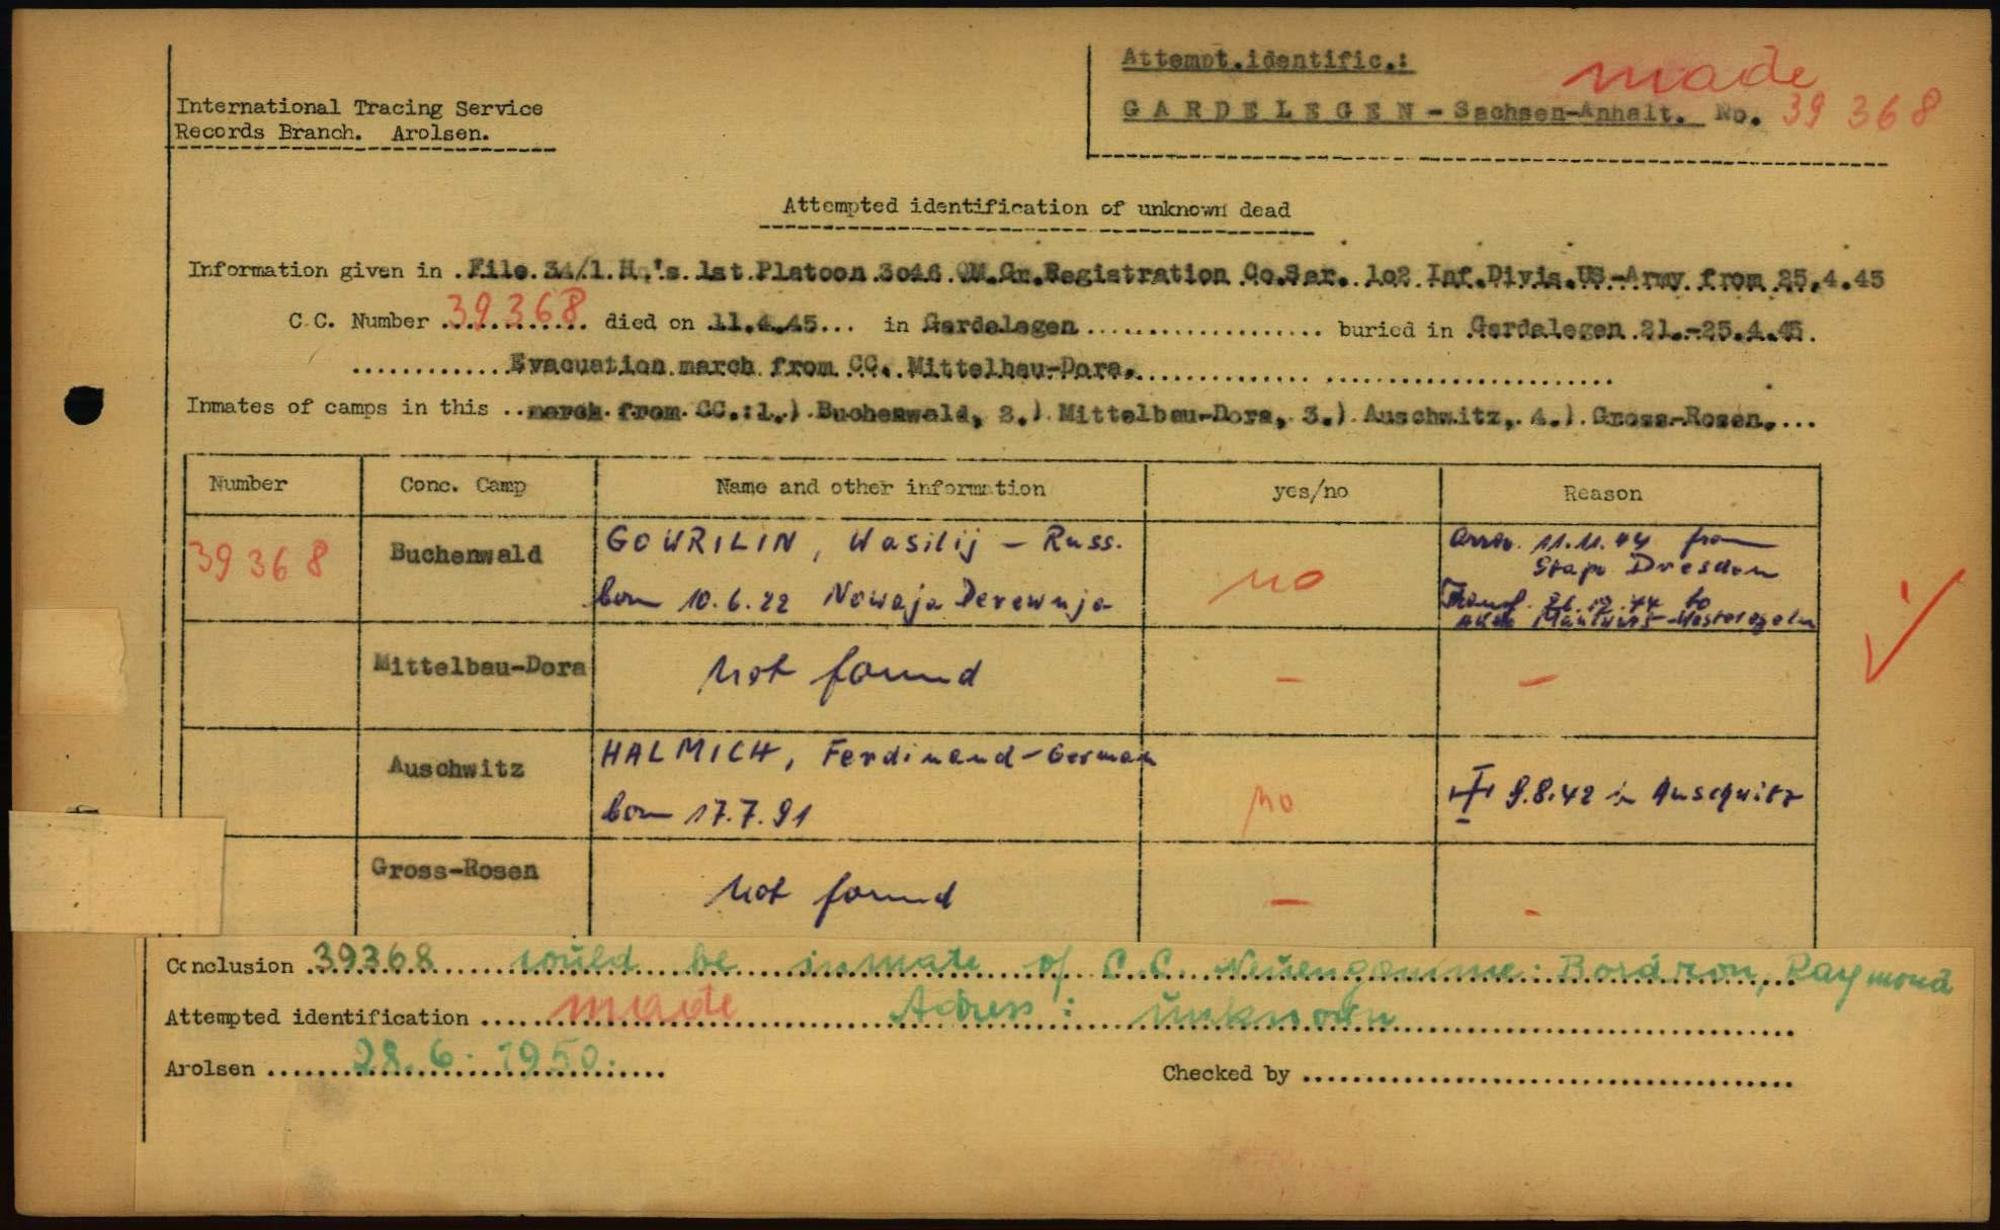 Attempt.identific.:
made
International Tracing Service
GARDELEGEN - Sachsen-Anhalt. No. 39 368
Records Branch. Arolsen.
Attempted identification of unknown dead
Information given in .File.34/1.H.'s.1st.Platoon.3046.QM.Gr.Registration Co.Ser. 1o2 Inf.Divis.US-Army from 25.4.45
C.C. Number 39368 died on 11.4.45... in Gardelegen .................... buried in Gardelegen 21.-25.4.45.
............Evacuation march from CC. Mittelbau-Dora.............................
Inmates of camps in this ..march from CC.:1.) Buchenwald, 2.) Mittelbau-Dora, 3.) Auschwitz, 4.) Gross-Rosen....
Number Conc. Camp Name and other information yes/no Reason
39368 Buchenwald GOWRILIN, Wasilij - Russ. no 11.11.44 from
Stapo Dresden
born 10.6.22 Nowaja Derewnja
to
Mittelbau-Dora not found - -
Auschwitz HALMICH, Ferdinand - German no 9.8.42 in Auschwitz
born 17.7.91
Gross-Rosen not found - -
Conclusion 39368 could be inmate of C.C. Neuengamme: Raymond
Attempted identification made Adress: unknown
Arolsen 28.6.1950.
Checked by ........................................